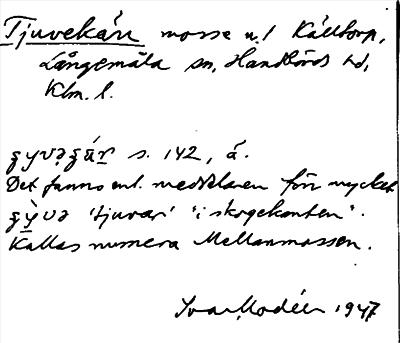 Tjuvekärr mosse u./ Källtorp,
Långemåla sn, Handbörds hd,
Klm. l.
s. 142, å.
Det fanns enl. meddelaren förr mycket
'tjuvar' "i skogskanten".
Kallas numera Mellanmossen.
Ivar Modéer 1947